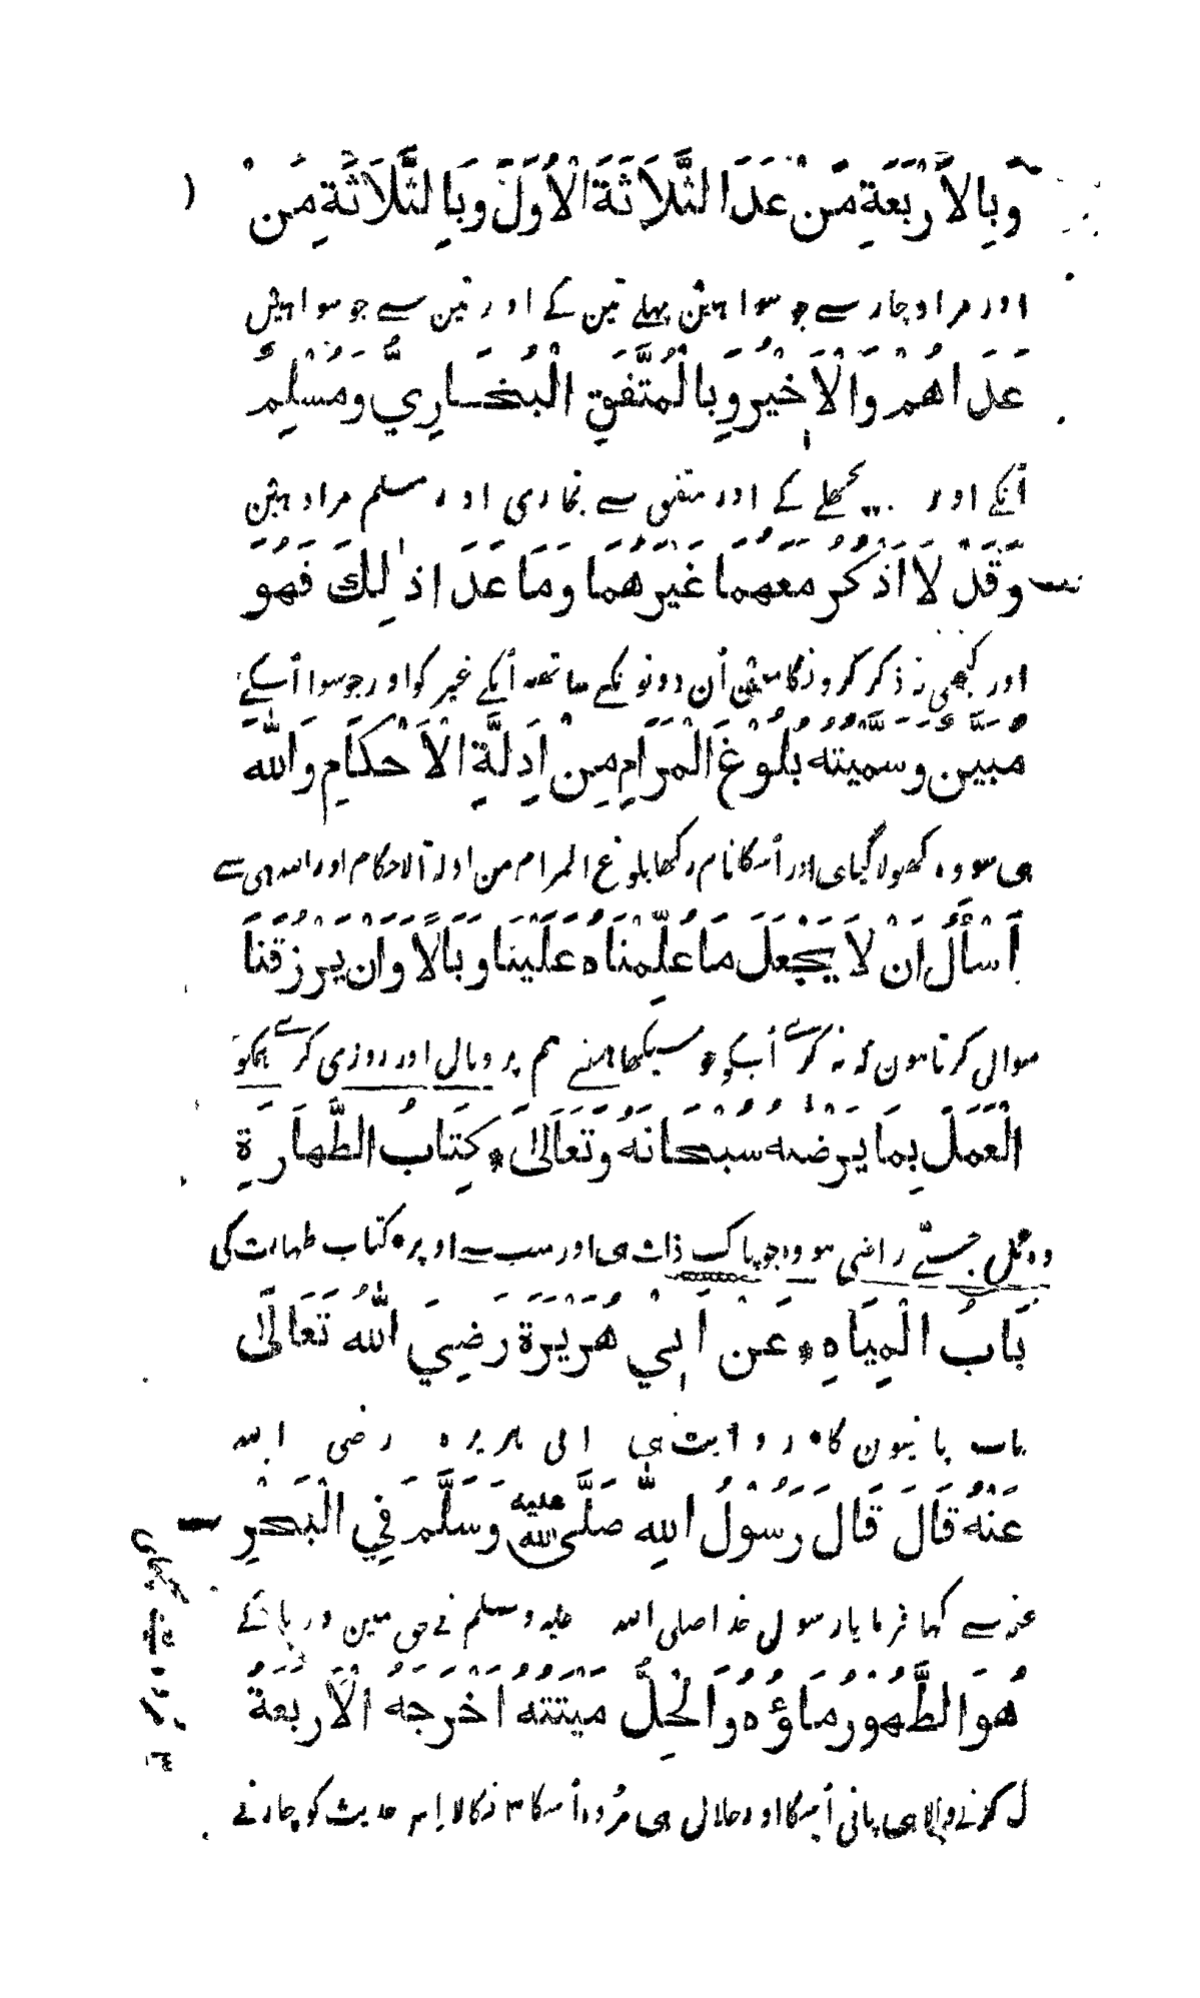 وَبِالْأَرْبَعَةِ مَنْ عَدَا الثَّلَاثَةَ الْأُوَلَ وَبِالثَّلَاثَةِ مَنْ
اور مراد چار سے جو سوا ہین پہلے تین کے اور تین سے جو سوا ہین
عَدَاهُمْ وَالْأَخِيْرَ وَبِالْمُتَّفَقِ الْبُخَارِيُّ وَمُسْلِمٌ
اُنکے اور پچھلے کے اور متفق سے بخاری اور مسلم مراد ہین
وَقَدْ لَا اَذْكُرُ مَعَهُمَا غَيْرَهُمَا وَمَا عَدَا ذٰلِكَ فَهُوَ
اور کبھی نہ ذکر کرونگا مین اُن دونونکے ساتھہ اُنکے غیر کو اور جو سوا اُسکے
مُبَيَّنٌ وَسَمَّيْتُهُ بُلُوْغَ الْمَرَامِ مِنْ اَدِلَّةِ الْاَحْكَامِ وَاللّٰهَ
ہی سو وہ کھولا گیا ہی اور اُسکا نام رکھا بلوغ المرام من ادلۃ الاحکام اور اللہ ہی سے
اَسْأَلُ اَنْ لَا يَجْعَلَ مَا عَلِّمْنَاهُ عَلَيْنَا وَبَالًا وَاَنْ يَرْزُقَنَا
سوال کرتا ہون کہ نہ کرے اُسکو جو سیکھا ہمنے ہم پر وبال اور روزی کرے ہمکو
الْعَمَلَ بِمَا يَرْضٰهُ سُبْحَانَهُ وَتَعَالٰى * كِتَابُ الطَّهَارَةِ
وہ عمل جسسے راضی ہو وہ جو پاک ذات ہی اور سب سے اوپر * کتاب طہارت کی
بَابُ الْمِيَاهِ * عَنْ اَبِيْ هُرَيْرَةَ رَضِيَ اللّٰهُ تَعَالٰى
باب پانیون کا * روایت ہی ابی ہریرہ رضی اللہ
عَنْهُ قَالَ قَالَ رَسُوْلُ اللّٰهِ صَلَّى اللّٰهُ عَلَيْهِ وَسَلَّمَ فِي الْبَحْرِ
عنہ سے کہا فرمایا رسول خدا صلی اللہ علیہ وسلم نے حق مین دریا کے
هُوَ الطَّهُوْرُ مَاؤُهُ وَالْحِلُّ مَيْتَتُهُ اَخْرَجَهُ الْاَرْبَعَةُ
کرنے والا ہی پانی اُسکا اور حلال ہی مُردہ اُسکا ۳ نکالا اِس حدیث کو چار نے